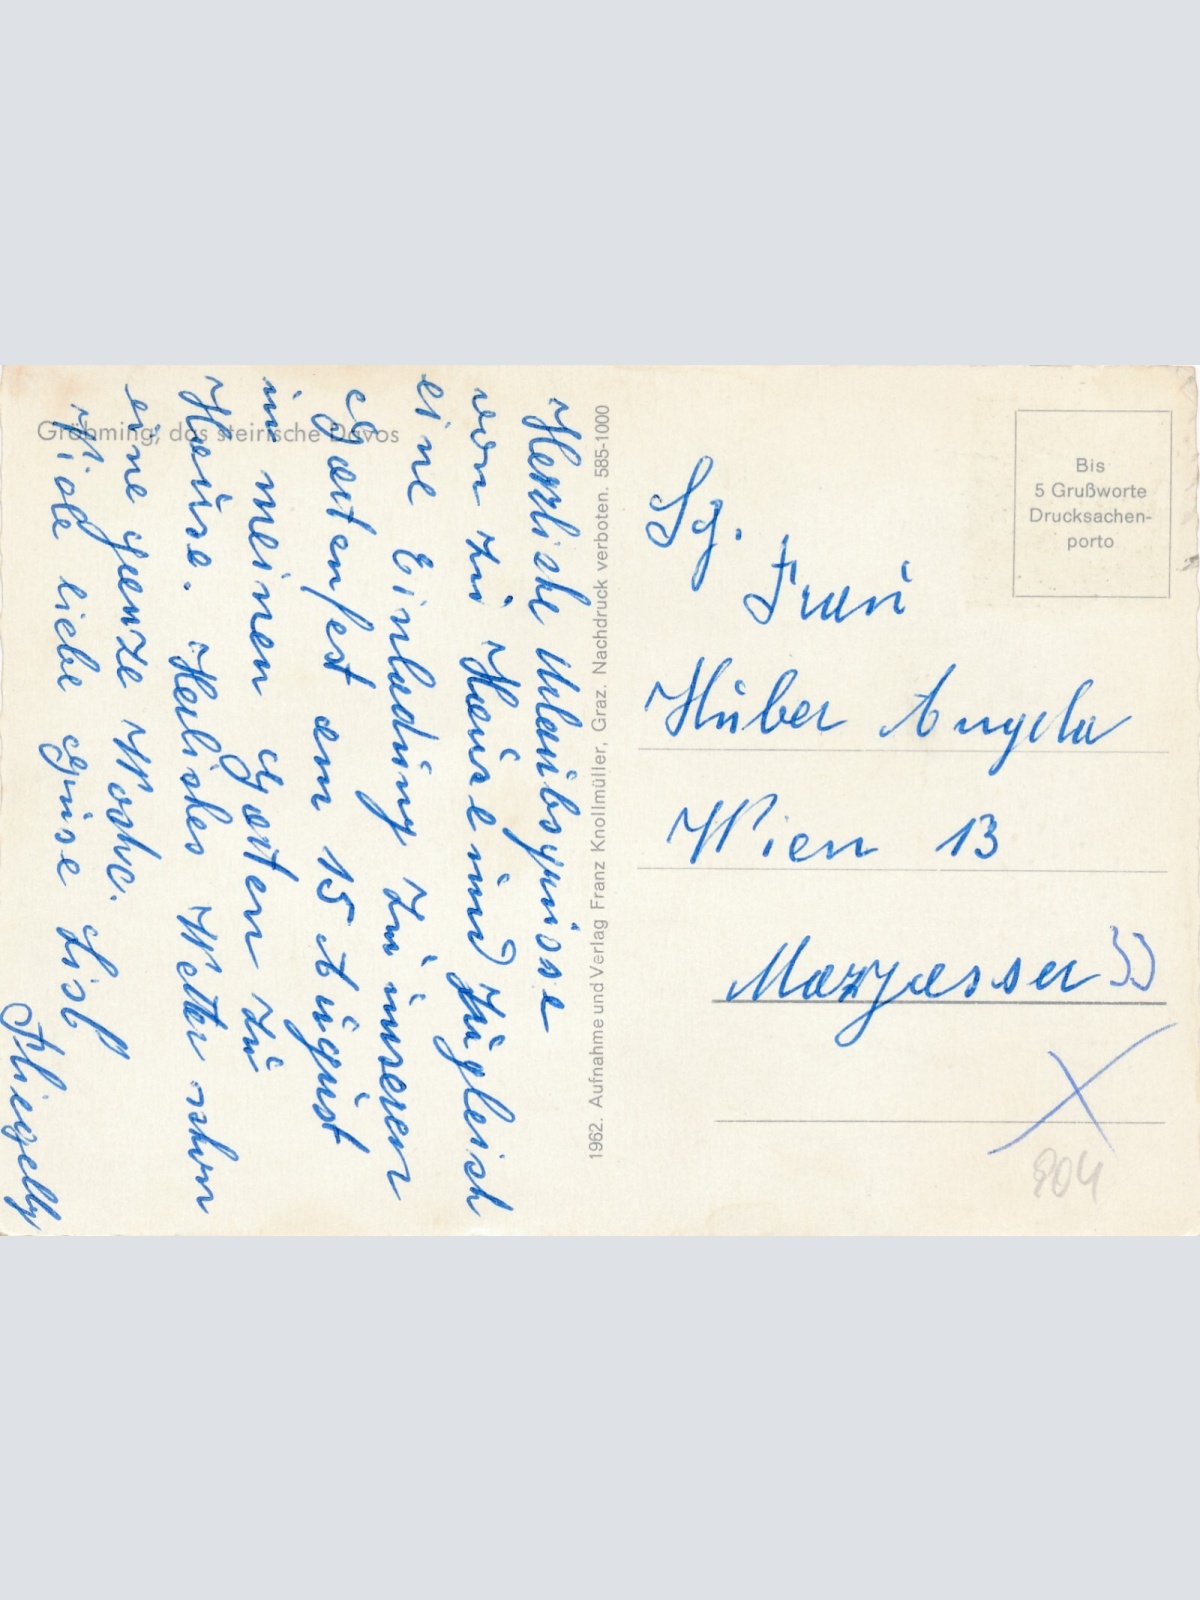 Gröbming, das steirische Davos
Herzliche Urlaubsgrüsse
von zu Hause und zugleich
eine Einladung zu unseren
Gartenfest am 15 August
in meinen Garten zu
Hause. Herliches Wetter schon
eine ganze Woche.
Viele liebe Grüse Lisl
1962. Aufnahme und Verlag Franz Knollmüller, Graz. Nachdruck verboten. 585-1000
Bis
5 Grußworte
Drucksachen-
porto
Sg.
Frau
Huber Angela
Wien 13
904